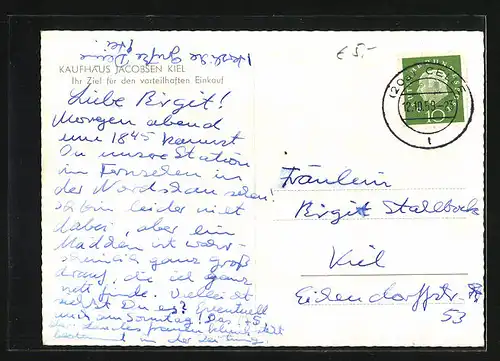 Herzliche Grüße Deine
KAUFHAUS JACOBSEN KIEL
Ihr Ziel für den vorteilhaften Einkauf
Liebe Birgit!
Morgen abend
um 1845 kannst
Du unsre Station
im Fernsehen in
der Nordschau sehen!
Ich bin leider nicht
dabei, aber ein
Mädchen ist wahr-
scheinlich ganz groß
drauf, die ich ganz
nett finde. Vielleicht
siehst Du es? Eventuell
auch am Sonntag! Das
bestimmt in der Zeitung.
£ 5,-
CELLE
12.10.59
10
Fräulein
Birgit Stallbock
Kiel
Eichendorffstr.
53